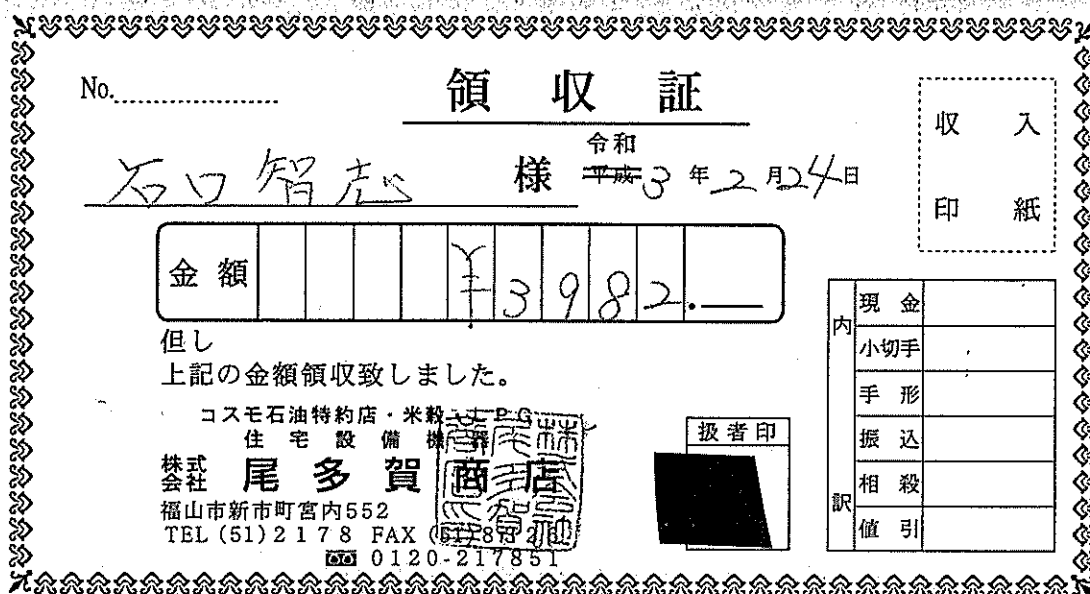 No.
領収証
収入
印紙
石口智志 様
令和
平成 3年2月24日
金額 ¥3982.—
但し
上記の金額領収致しました。
コスモ石油特約店・米穀・LPG
住宅設備機器
株式会社 尾多賀商店
福山市新市町宮内552
TEL (51)2178 FAX (51)
0120-217851
扱者印
内訳
現金
小切手
手形
振込
相殺
値引